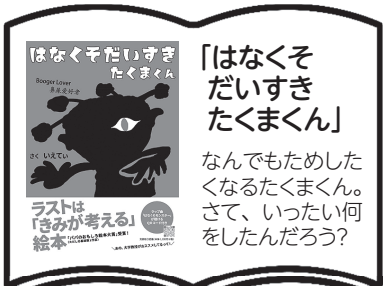 はなくそだいすき
たくまくん
Booger Lover
鼻屎愛好者
さく いえてぃ
ラストは
「きみが考える」
絵本
「はなくそ
だいすき
たくまくん」
なんでもためした
くなるたくまくん。
さて、いったい何
をしたんだろう?